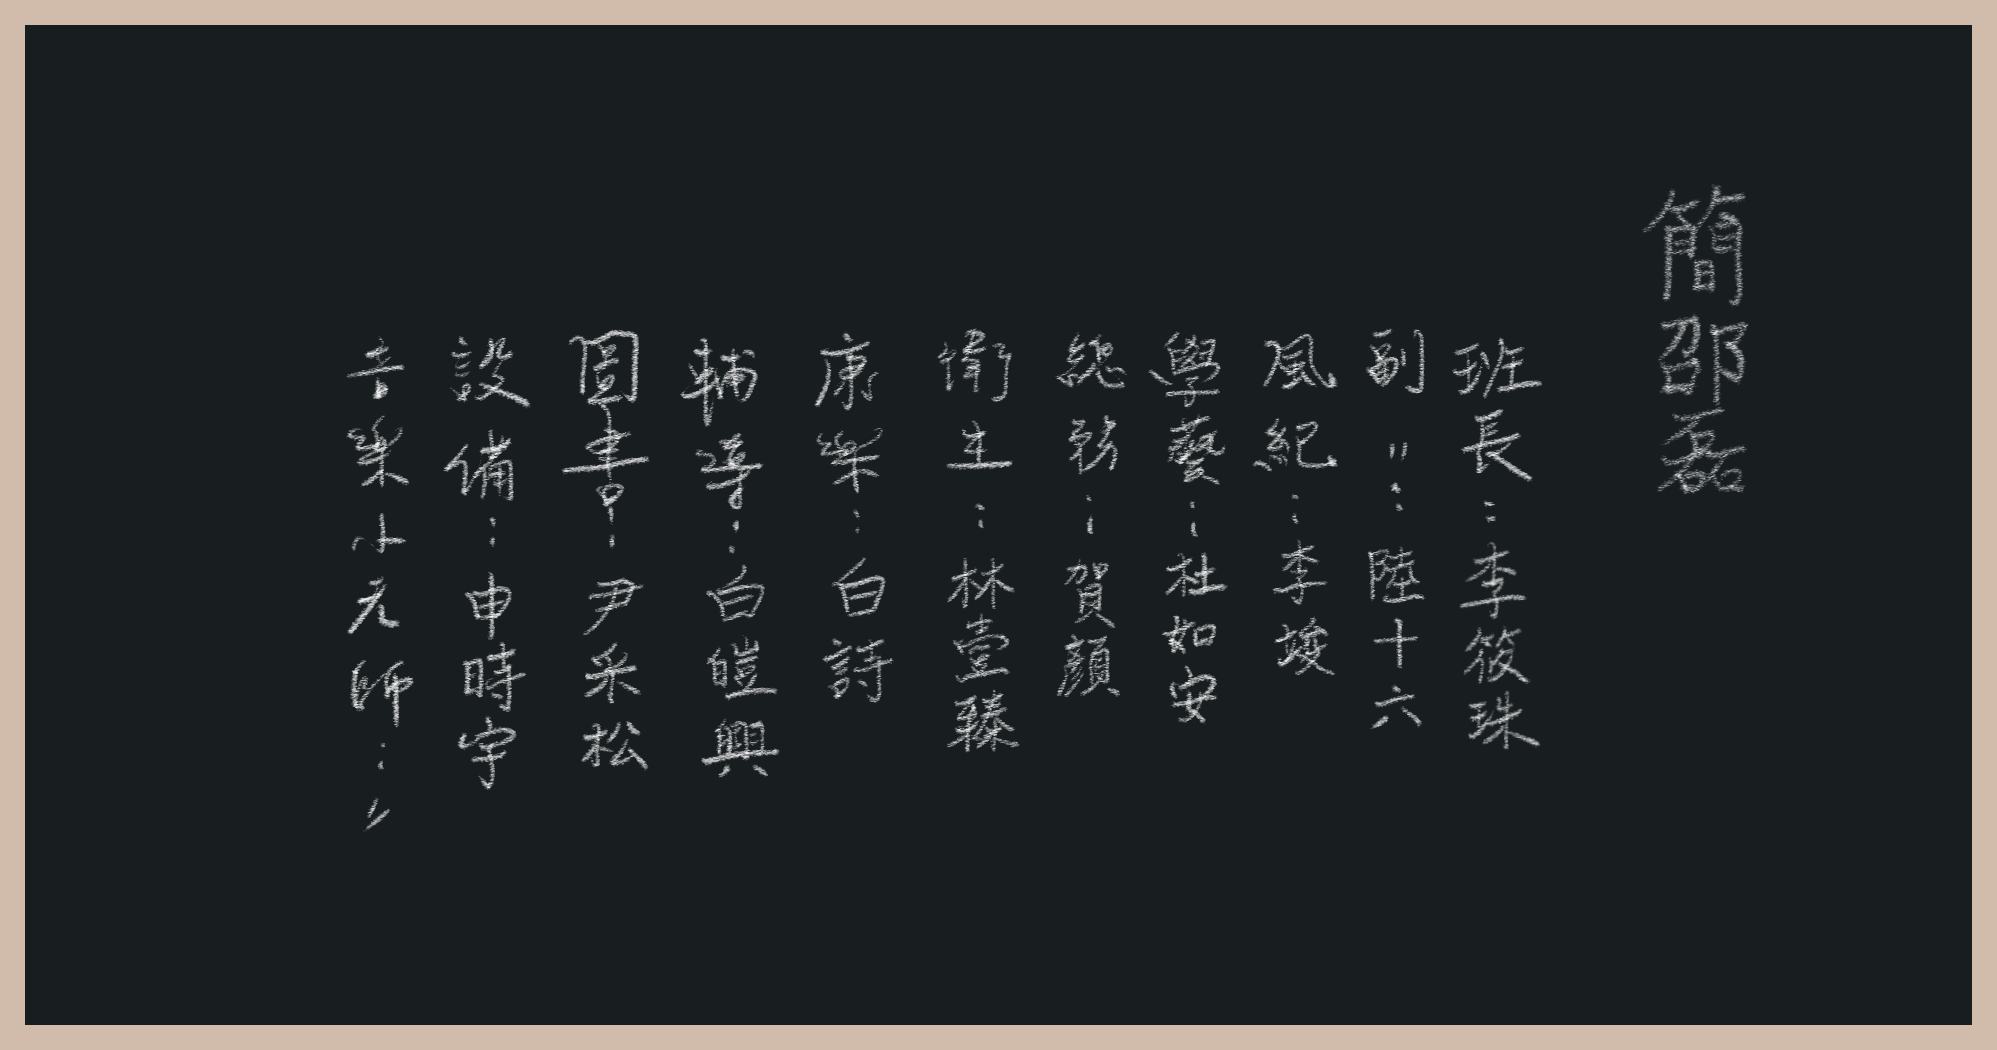 簡邵磊
班長：李筱珠
副〃：陸十六
風紀：李竣
學藝：杜如安
總務：賀顏
衛生：林壹臻
康樂：白詩
輔導：白皚興
圖書：尹采松
設備：申時宇
音樂小老師：〃